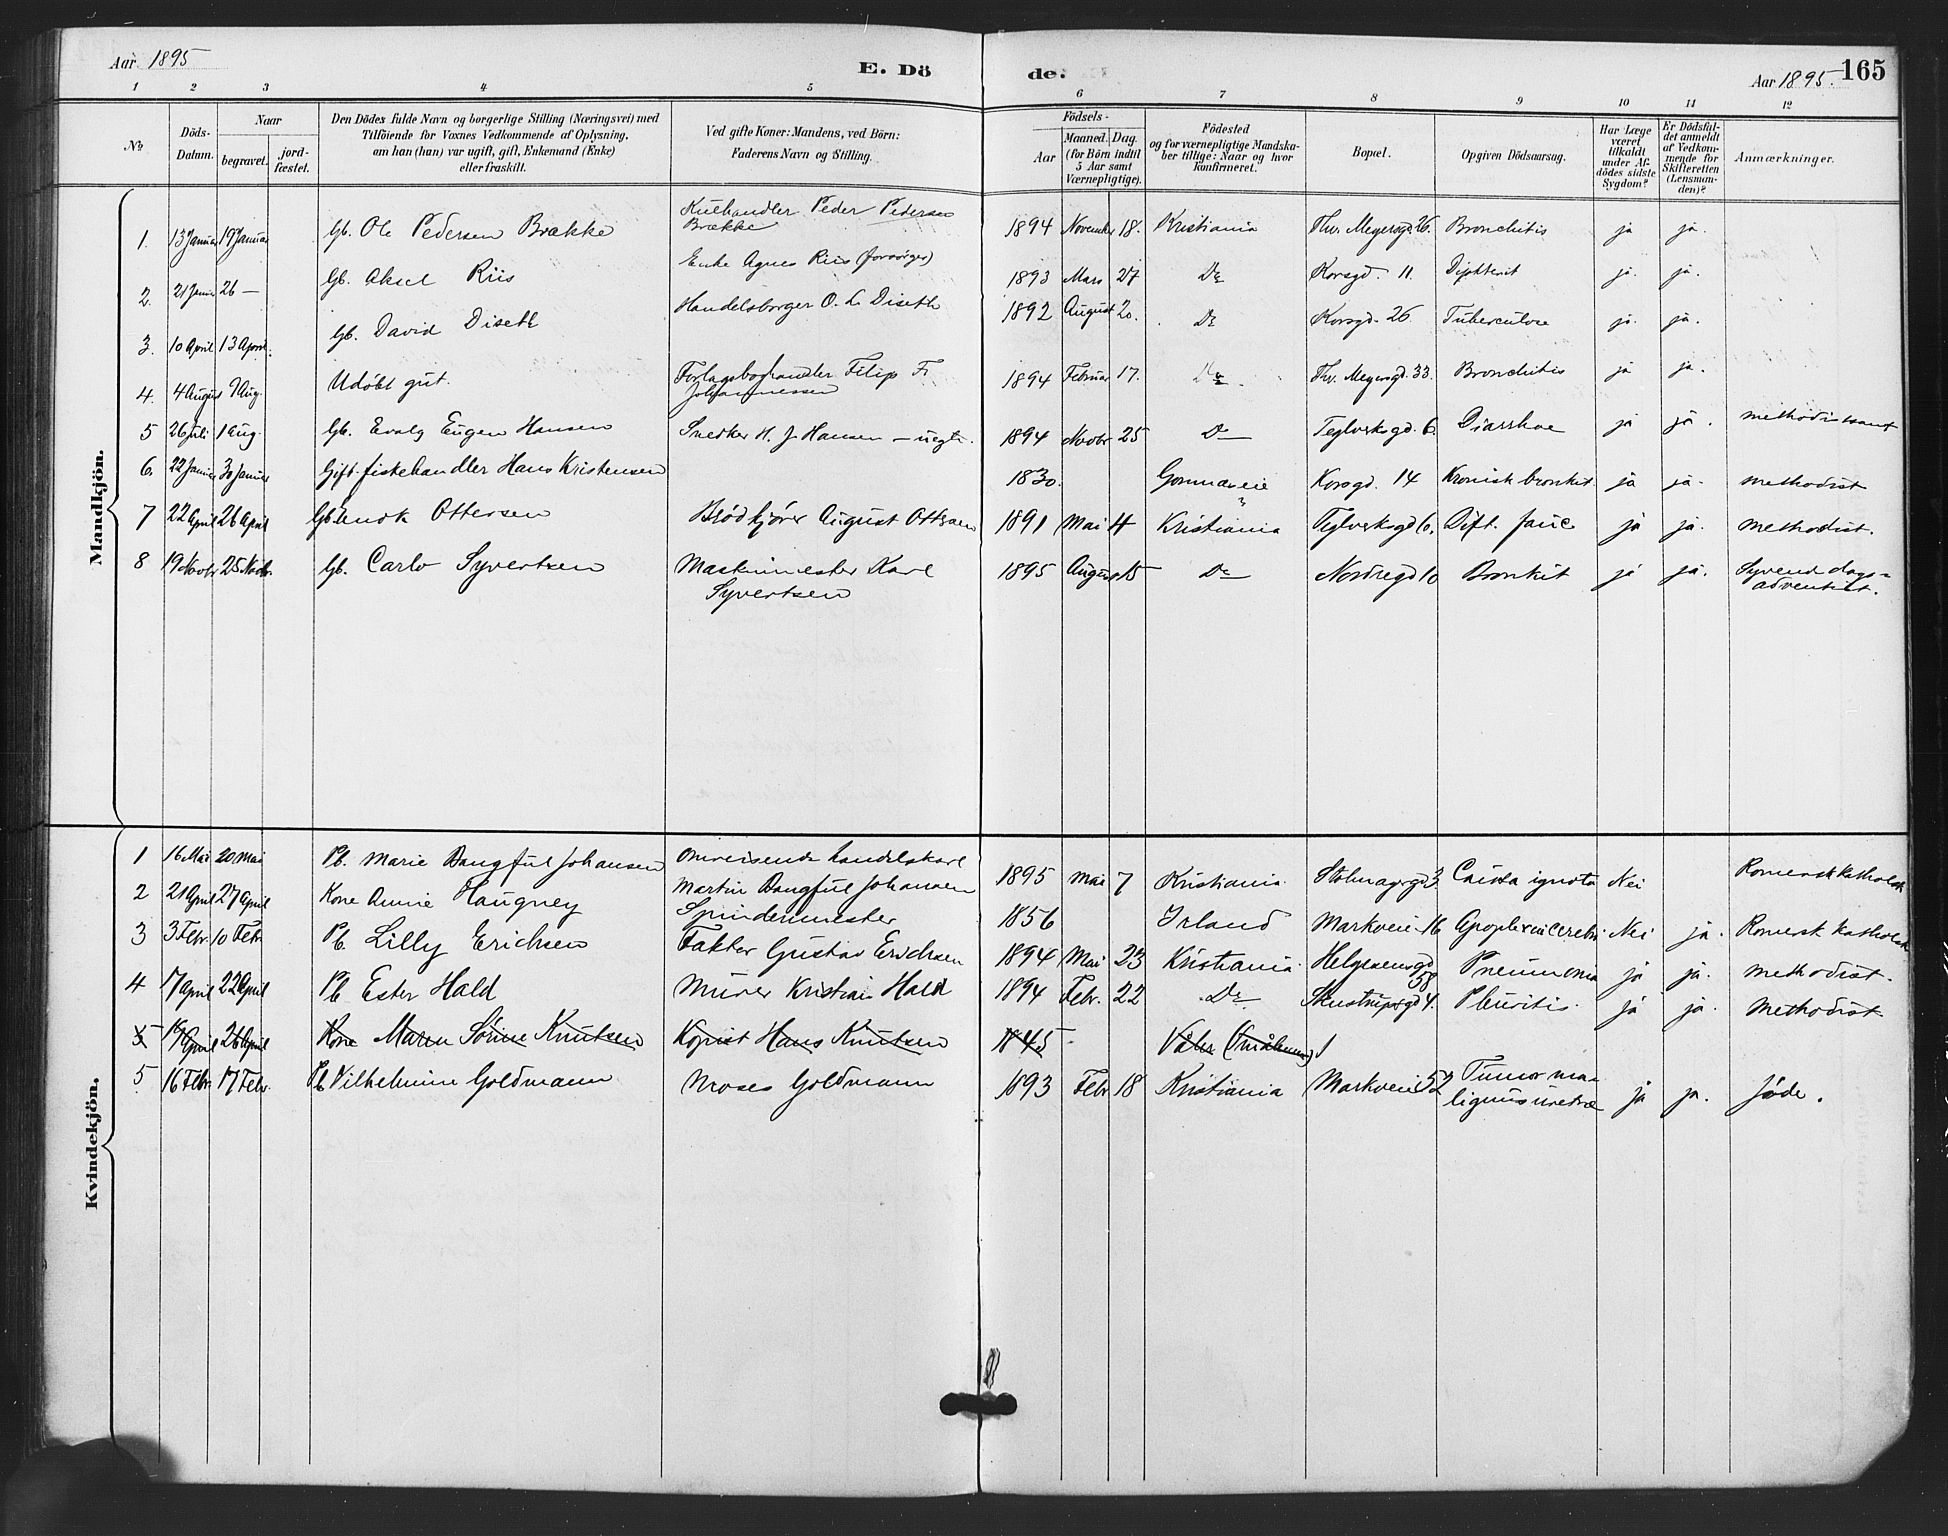 Aar 1895
E. Dö
de.
Aar 1895.
165
1 2 3 4 5 6 7 8 9 10 11 12
No
Döds-Datum.
Naar
begravet.
jord-fæstet.
Den Dödes fulde Navn og borgerlige Stilling (Næringsvei) med
Tilföiende for Voxnes Vedkommende af Oplysning,
om han (hun) var ugift, gift, Enkemand (Enke)
eller fraskilt.
Ved gifte Koner: Mandens, ved Börn:
Faderens Navn og Stilling.
Födsels-
Aar
Maaned. Dag.
(for Börn indtil
5 Aar samt
Værnepligtige).
Födested
og for værnepligtige Mandska-
ber tillige: Naar og hvor
konfirmeret.
Bopæl.
Opgiven Dödsaarsag.
Har Læge
været
tilkaldt
under Af-
dödes sidste
Sygdom?
Er Dödsfal-
det anmeldt
af Vedkom-
mende for
Skifteretten
(Lensman-
den)?
Anmærkninger.
Mandkjön.
1. 13 Januar 19 Januar Gb. Ole Pedersen Brække Kulhandler Peder Pedersen Brække 1894 November 18. Kristiania Thv. Meyersgd. 26. Bronchitis ja ja.
2. 21 Januar 26 — Gb. Aksel Riis Enke Agnes Riis (forsörger) 1893 Mars 27 Do Korsgd. 11. Diphterit ja. ja.
3. 10 April 13 April. Gb. David Diseth Handelsborger O. L. Diseth 1892 August 20. Do Korsgd. 26. Tuberculose ja. ja.
4. 4 August 9 Aug. Udöbt gut. Forlagsboghandler Filip Fr. Johannessen 1894 Februar 17. Do Thv. Meyersgd. 33. Bronchitis ja ja.
5 26 Juli 1 Aug. Gb. Evald Eugen Hansen Snedker H. J. Hansen — uegte. 1894 Novbr 25 Do Teglverksgd. 6. Diarrhoe ja ja.
6. 22 Januar 30 Januar Gift fiskehandler Hans Kristensen 1830. Korsgd. 14 Kronisk bronkit. ja ja. methodist
7 22 April 26 April Gb. Ottersen Brödkjörer August Ottersen 1891 Mai 4 Kristiania Teglverksgd 6. Dift. fauc ja ja. methodist.
8 19 Novbr 25 Novbr. Gb. Carlo Syvertsen Maskinmester Karl Syvertsen 1895 August 15 Do Nordregd 10 Bronkit ja ja. Syvend dags-adventist.
Kvindekjön.
1 16 Mai 20 Mai Pb. Marie Dangful Johansen Omreisende handelskarl Martin Dangful Johansen 1895 Mai 7 Kristiania. 3 Causa ignota Nei Romersk katholsk
2 21 April 27 April Kone Annie Haugney Spindemester 1856 Irland Markveien 16 Apoplexia cerebri Nei ja. Romersk katholsk
3 3 Febr. 10 Febr Pb. Lilly Erichsen Faktor Gustav Erichsen 1894 Mai 23 Kristiania Helgesensgd 58 Pneumonia ja ja. methodist.
4 17 April 22 April Pb Ester Hald Murer Kristian Hald 1894 Febr. 22 Do 4. Pleuritis. ja ja. Methodist
5 19 April 26 April Kone Maren Sörine Knutsen Kopist Hans Knutsen 1845 Våler (Smålenene)
5 16 Febr. 17 Febr. Pb Vilhelmine Goldmann Moses Goldmann 1893 Febr 18 Kristiania Markveien 52 Tumor ma-lignus uretræ ja ja. Jöde.